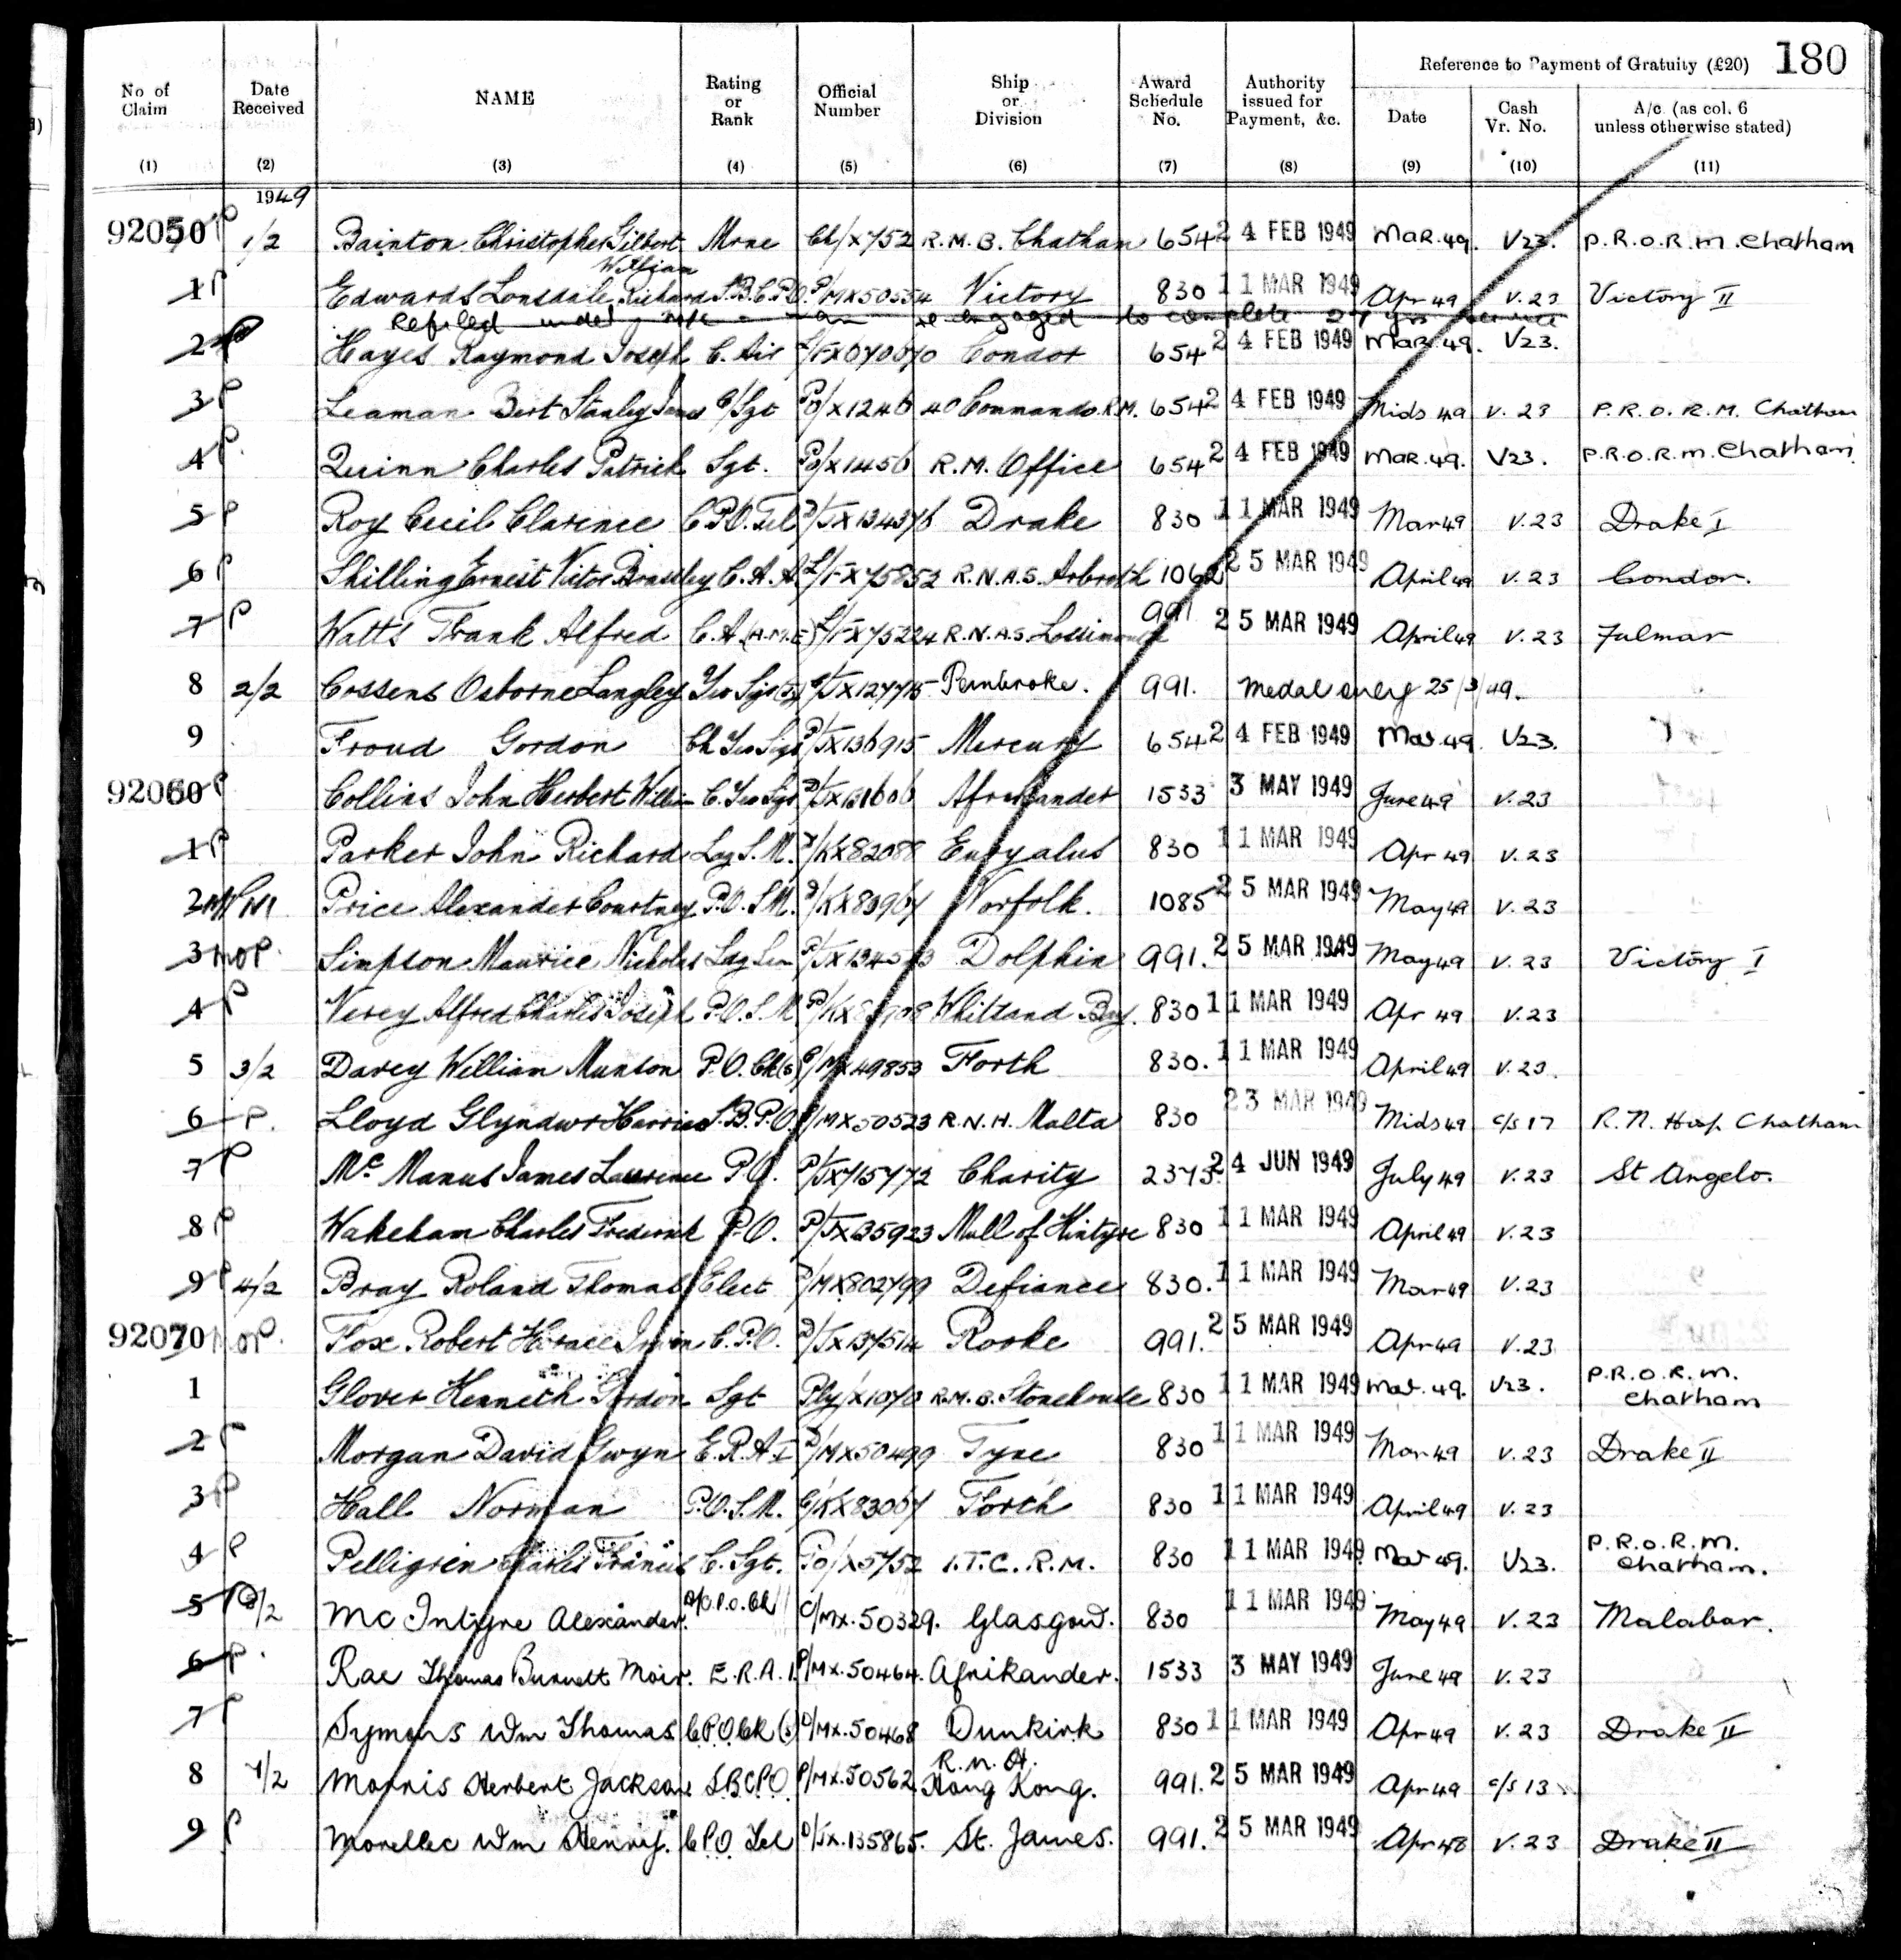 Reference to Payment of Gratuity (£20) 180
No of Claim Date Received NAME Rating or Rank Official Number Ship or Division Award Schedule No. Authority issued for Payment, &c. Date Cash Vr. No. A/c (as col. 6 unless otherwise stated)
(1) (2) (3) (4) (5) (6) (7) (8) (9) (10) (11)
1949
92050 P 1/2 Bainton Christopher Gilbert Mrne Ch/X752 R.M.B. Chatham 654 24 FEB 1949 Mar. 49. V23. P.R.O.R.M. Chatham
William
1 P Edwards Lonsdale Richard S.B.C.P.O. P/MX50554 Victory 830 11 MAR 1949 Apr 49 V.23 Victory II
re engaged to complete
2 P Hayes Raymond Joseph C. Air Condor 654 24 FEB 1949 Mar. 49. V23.
3 P Leaman Bert Stanley James C/Sgt Po/X1246 40 Commando R.M. 654 24 FEB 1949 Mids 49 V. 23 P.R.O.R.M. Chatham
4 P Quinn Charles Patrick Sgt. Po/X1456 R.M. Office 654 24 FEB 1949 Mar. 49. V23. P.R.O.R.M. Chatham
5 P Roy Cecil Clarence C.P.O. Tel D/JX134376 Drake 830 11 MAR 1949 Mar 49 V.23 Drake I
6 P Shilling Ernest Victor Brassley C.A.A. L/FX75852 R.N.A.S. Arbroath 1062 25 MAR 1949 April 49 V.23 Condor.
7 P Watts Frank Alfred C.A.(A.M.E) L/FX75224 R.N.A.S. Lossimouth 991 25 MAR 1949 April 49 V.23 Fulmar
8 2/2 Cossens Osborne Langley Yeo Sigs JX127715 Pembroke. 991. Medal only 25/3/49.
9 Froud Gordon Ch Yeo Sigs P/JX136915 Mercury 654 24 FEB 1949 Mar 49. V23.
92060 P Collins John Herbert William C. Yeo Sigs D/JX131606 Afrikander 1533 3 MAY 1949 June 49 V.23
1 P Parker John Richard Ldg S.M. K/X82088 Euryalus 830 11 MAR 1949 Apr 49 V.23
2 Price Alexander Courtney P.O. S.M. KX83967 Norfolk. 1085 25 MAR 1949 May 49 V.23
3 NOP. Simpson Maurice Nicholas Ldg Sea P/JX134583 Dolphin 991. 25 MAR 1949 May 49 V.23 Victory I
4 P Verey Alfred Charles Joseph P.O. S.M. Whitsand Bay. 830 11 MAR 1949 Apr 49 V.23
5 3/2 Davey William Munton P.O. Ck(s) C/MX49853 Forth 830. 11 MAR 1949 April 49 V.23.
6 P. Lloyd Glyndwr Harries S.B.P.O. MX50523 R.N.H. Malta 830 23 MAR 1949 Mids 49 c/s 17 R.N. Hosp Chatham
7 P Mc Manus James Lawrence P.O. P/JX715772 Charity 2373. 24 JUN 1949 July 49 V.23 St Angelo.
8 P Wakeham Charles Frederick P.O. P/JX135923 Mull of Kintyre 830 11 MAR 1949 April 49 V.23
9 P 4/2 Bray Roland Thomas Elect MX802799 Defiance 830. 11 MAR 1949 Mar 49 V.23
92070 NOP. Fox Robert Horace Irwin C.P.O. D/JX137514 Rooke 991. 25 MAR 1949 Apr 49 V.23
1 Glover Kenneth Gordon Sgt Ply/X1070 R.M.B. Stonehouse 830 11 MAR 1949 Mar. 49. V23. P.R.O.R.M. Chatham
2 Morgan David Gwyn E.R.A I D/MX50499 Tyne 830 11 MAR 1949 Mar 49 V.23 Drake II
3 P Hall Norman P.O.S.M. C/KX83067 Forth 830 11 MAR 1949 April 49 V.23
4 P Pelligrin Charles Francis C. Sgt. Po/X5752 I.T.C.R.M. 830 11 MAR 1949 Mar 49. V23. P.R.O.R.M. Chatham.
5 P Mc Intyre Alexander. A/C.P.O. Ck C/MX.50329. Glasgow. 830 11 MAR 1949 May 49 V.23 Malabar.
6 P. Rae Thomas Burnett Moir. E.R.A. 1. P/MX.50464. Afrikander. 1533 3 MAY 1949 June 49 V.23
7 P Symons Wm Thomas C.P.O. Ck (s) D/MX.50468 Dunkirk 830 11 MAR 1949 Apr 49 V.23 Drake II
8 7/2 Morris Herbert Jackson S.B.C.P.O. P/MX.50562 R.N.H. Hong Kong. 991. 25 MAR 1949 Apr 49 c/s 13
9 P Morellec Wm Henry. C.P.O. Tel D/JX.135865. St. James. 991. 25 MAR 1949 Apr 48 V.23 Drake II